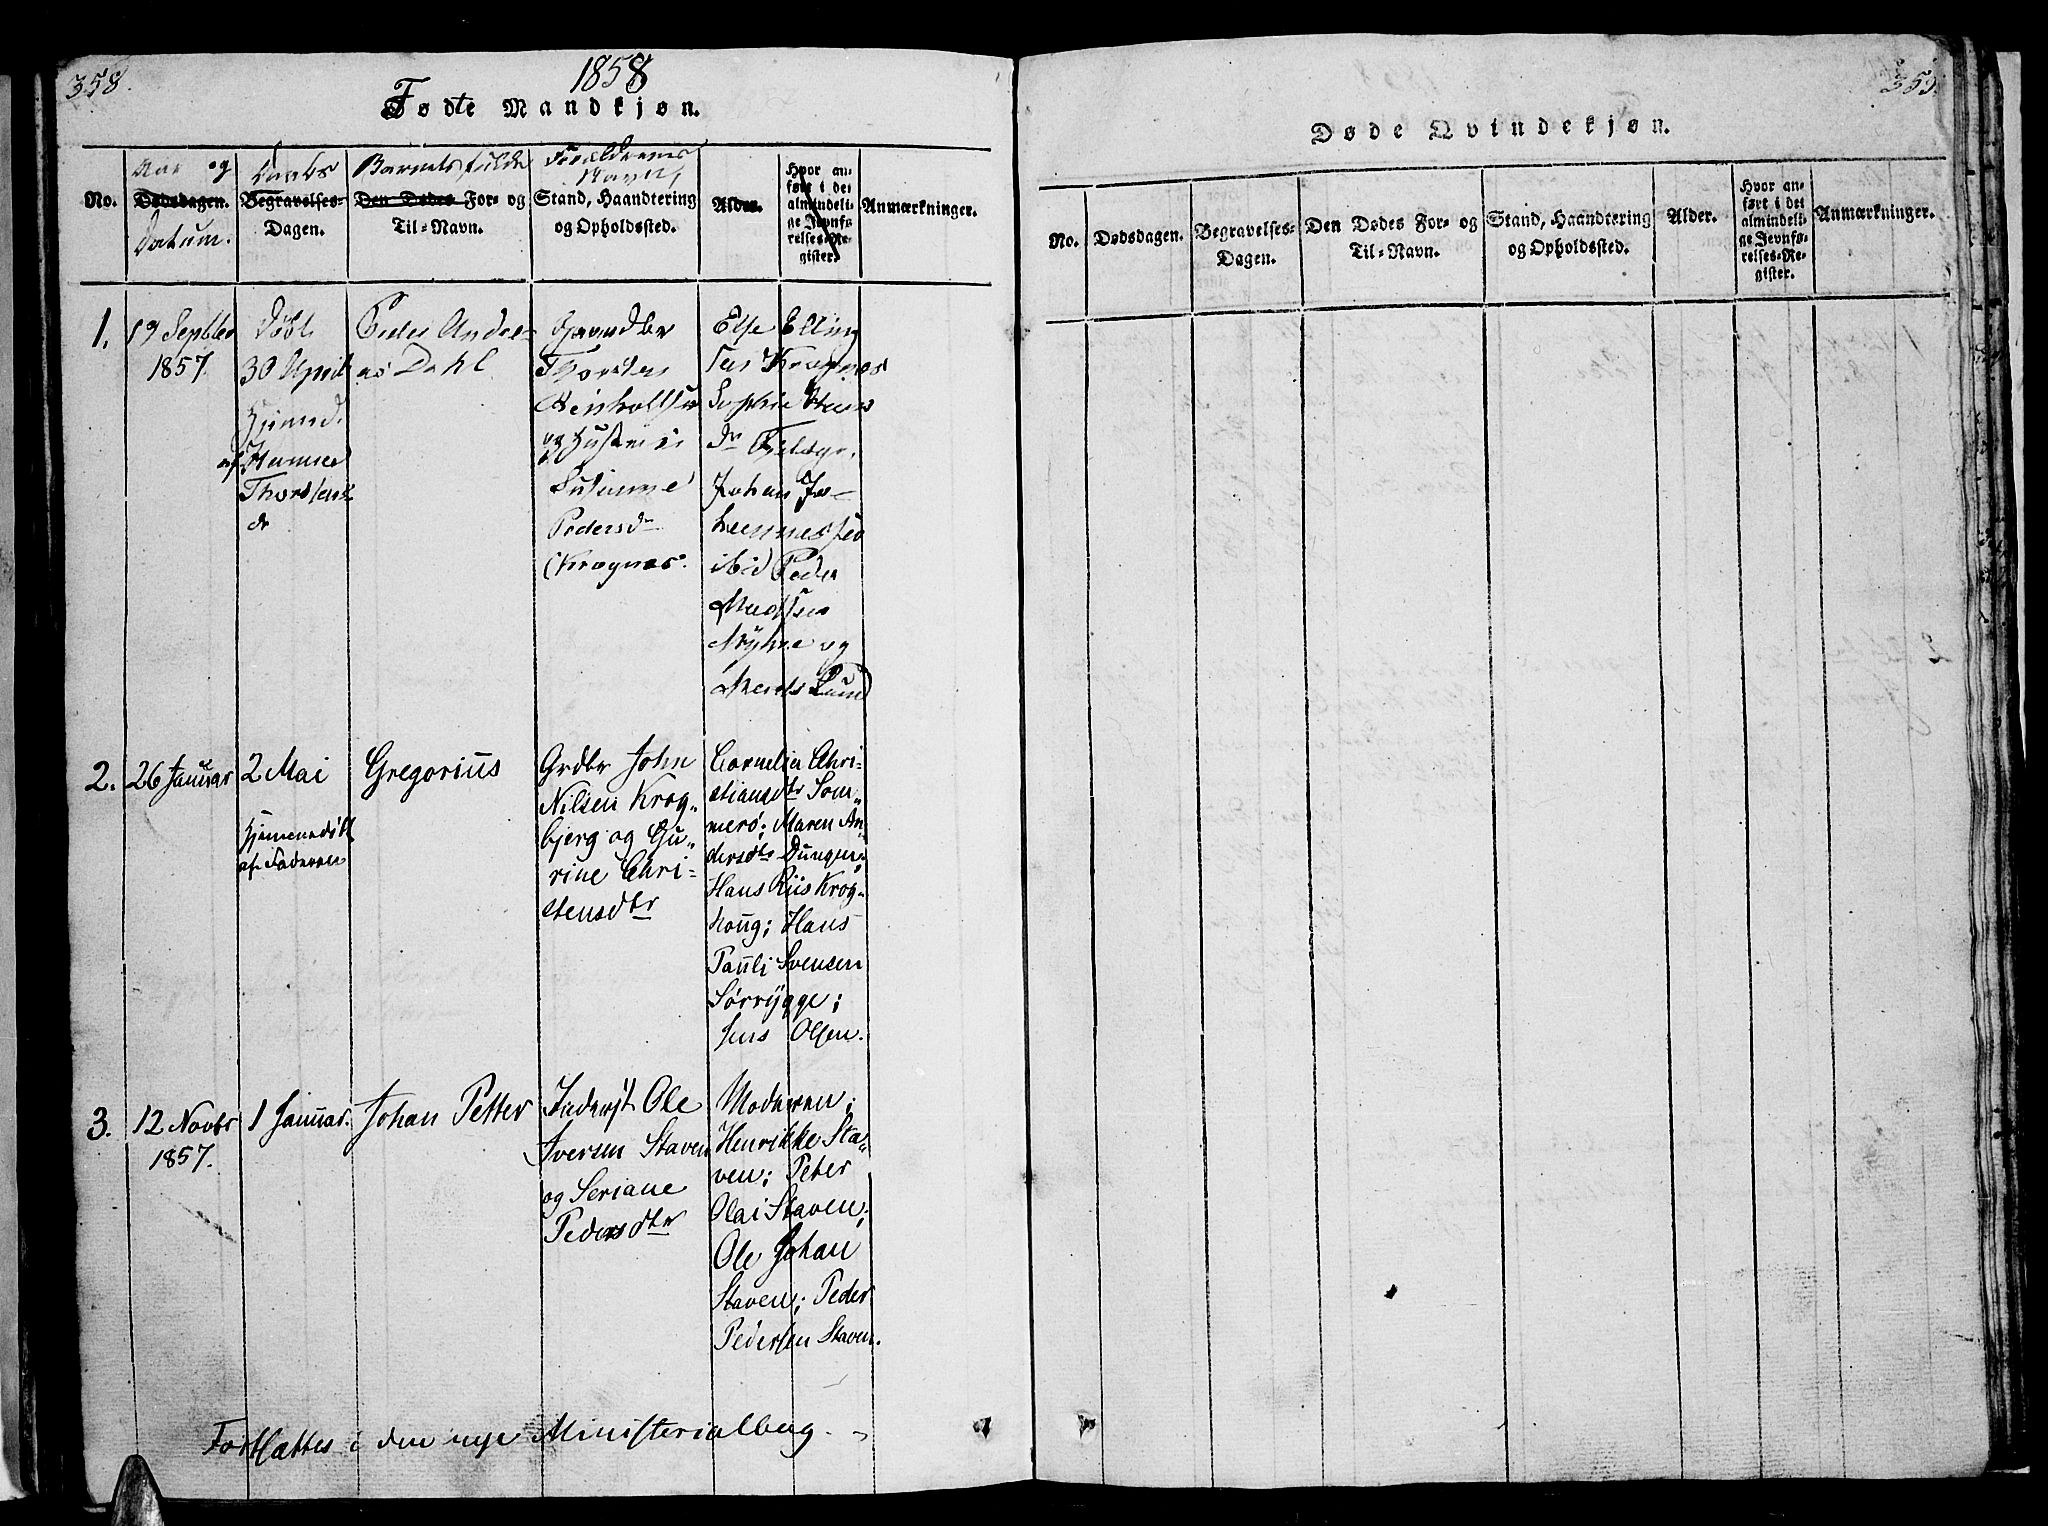 358.
1858
Fødte Mandkjøn.
No.
Aar og
Dødsdagen.
Datum.
Daabs
Begravelses-
Dagen.
Barnets fulde
Den Dødes For- og
Til-Navn.
Forældrenes
Navn,
Stand, Haandtering
og Opholdssted.
Alder.
Hvor an-
ført i det
almindeli-
ge Jevnfø-
relses-Re-
gister.
Anmærkninger.
1.
19 Septbr
1857.
Døbt
30 April
Hjemmd.
af Hanna
Thorstens
dr
Peder Andre-
as Dahl
Gaardbr
Thorsten
Reinholtsen
og Hustru
Susanne
Pedersdr
Krognes.
Else Elling
sen Krognes
Sophie Hans
dr
Johan Jo-
hannessen
ibid Peder
Madssen
Myhre og
Mads Lund
2.
26 Januar
2 Mai
Hjemmedøbt
af Faderen
Gregorius
Grdbr John
Nilsen Krog-
bjerg og Gu-
rine Chri-
stensdtr
Cornelia Chri-
stiansdtr Som-
merø; Maren An-
dersdtr
Hans Riis Krog-
houg; Hans
Pauli Svensen
Sørrygge;
Jens Olsen.
3.
12 Novbr
1857.
1 Januar.
Johan Petter
Inderst Ole
Iversen Staven
og Seriane
Pedersdtr
Moderen;
Henrikke Sta-
ven; Peter
Olai Staven;
Ole Johan
Staven; Peder
Pedersen Staven.
Fortsættes i den nye Ministerialbog.
359.
Døde Qvindekjøn.
No.
Dødsdagen.
Begravelses-
Dagen.
Den Dødes For- og
Til-Navn.
Stand, Haandtering
og Opholdssted.
Alder.
Hvor an-
ført i det
almindeli-
ge Jevnfø-
relses-Re-
gister.
Anmærkninger.